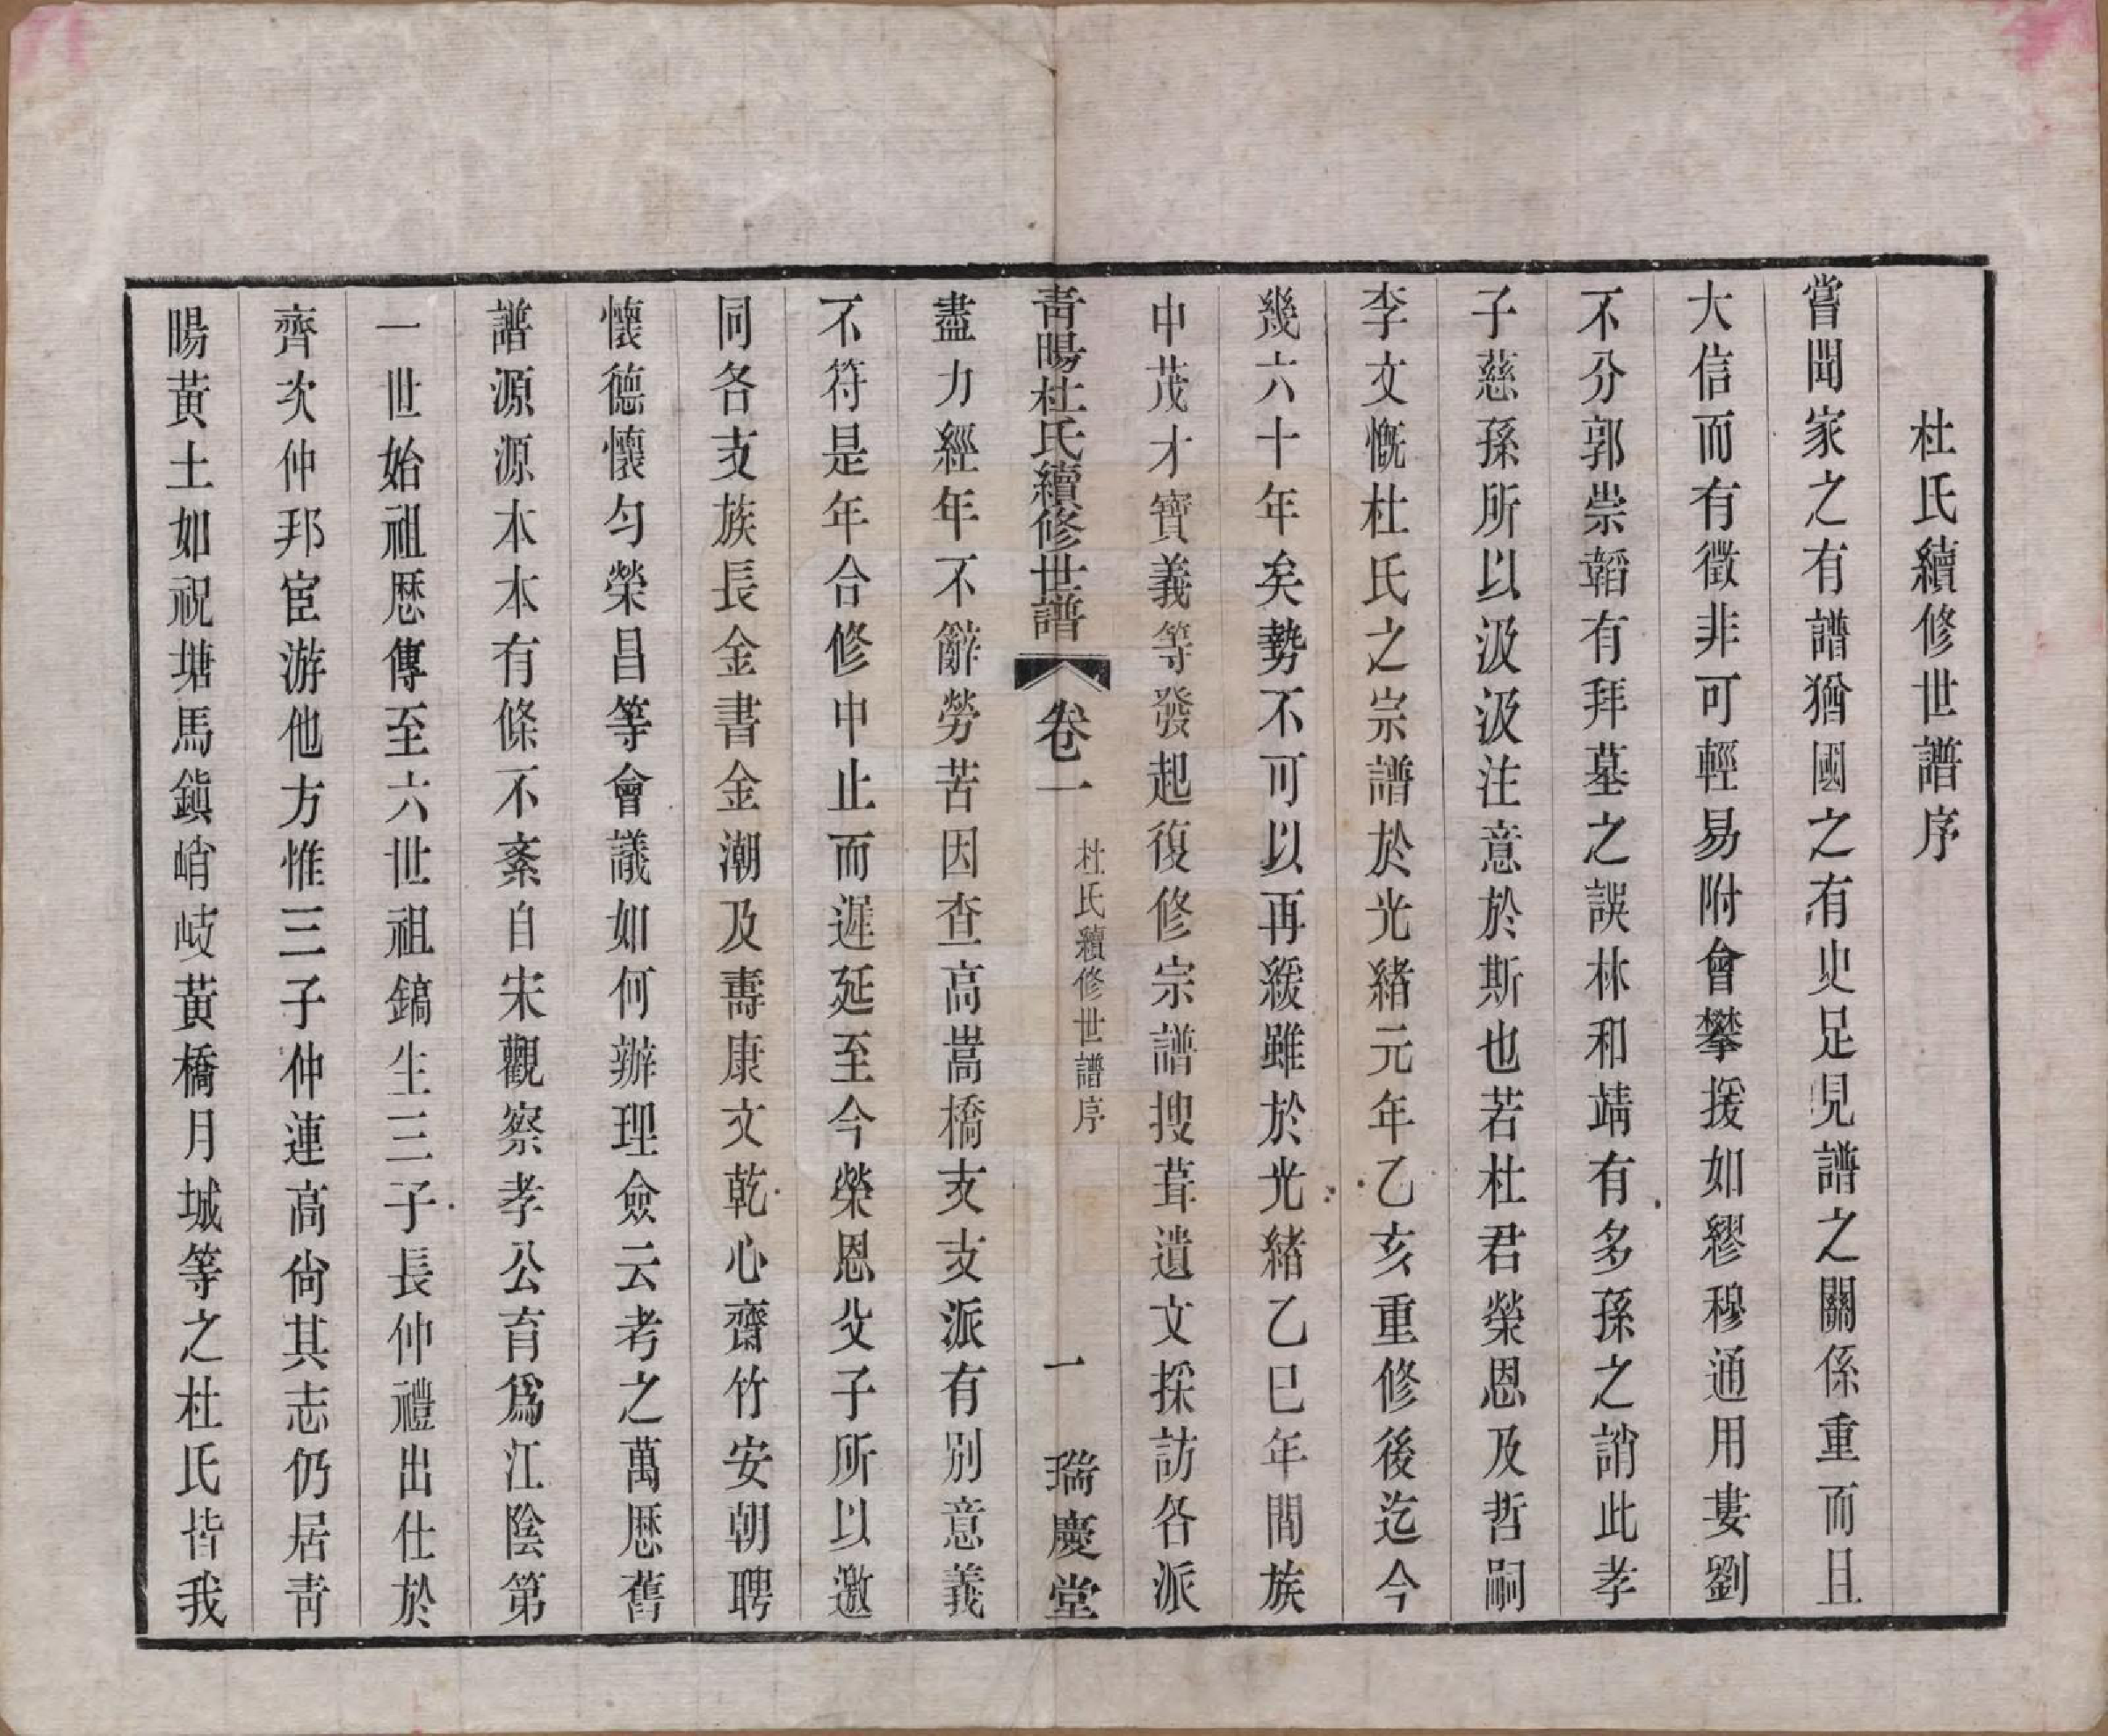 杜氏續修世譜序
嘗聞家之有譜猶國之有史足見譜之關係重而且
大信而有徵非可輕易附會攀援如繆穆通用婁劉
不分郭崇韜有拜墓之誤林和靖有多孫之誚此孝
子慈孫所以汲汲注意於斯也若杜君榮恩及哲嗣
李文慨杜氏之宗譜於光緒元年乙亥重修後迄今
幾六十年矣勢不可以再緩雖於光緒乙巳年間族
中茂才寶義等發起復修宗譜搜葺遺文採訪各派
青暘杜氏續修世譜 卷一 杜氏續修世譜序 一 瑞慶堂
盡力經年不辭勞苦因查高嵩橋支支派有別意義
不符是年合修中止而遲延至今榮恩父子所以邀
同各支族長金書金潮及壽康文乾心齋竹安朝聘
懷德懷勻榮昌等會議如何辦理僉云考之萬厯舊
譜源源本本有條不紊自宋觀察孝公育爲江陰第
一世始祖厯傳至六世祖鎬生三子長仲禮出仕於
齊次仲邦宦游他方惟三子仲連高尙其志仍居青
暘黃土如祝塘馬鎭峭岐黃橋月城等之杜氏皆我